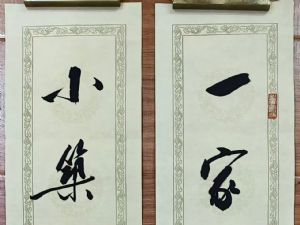 一家
小築